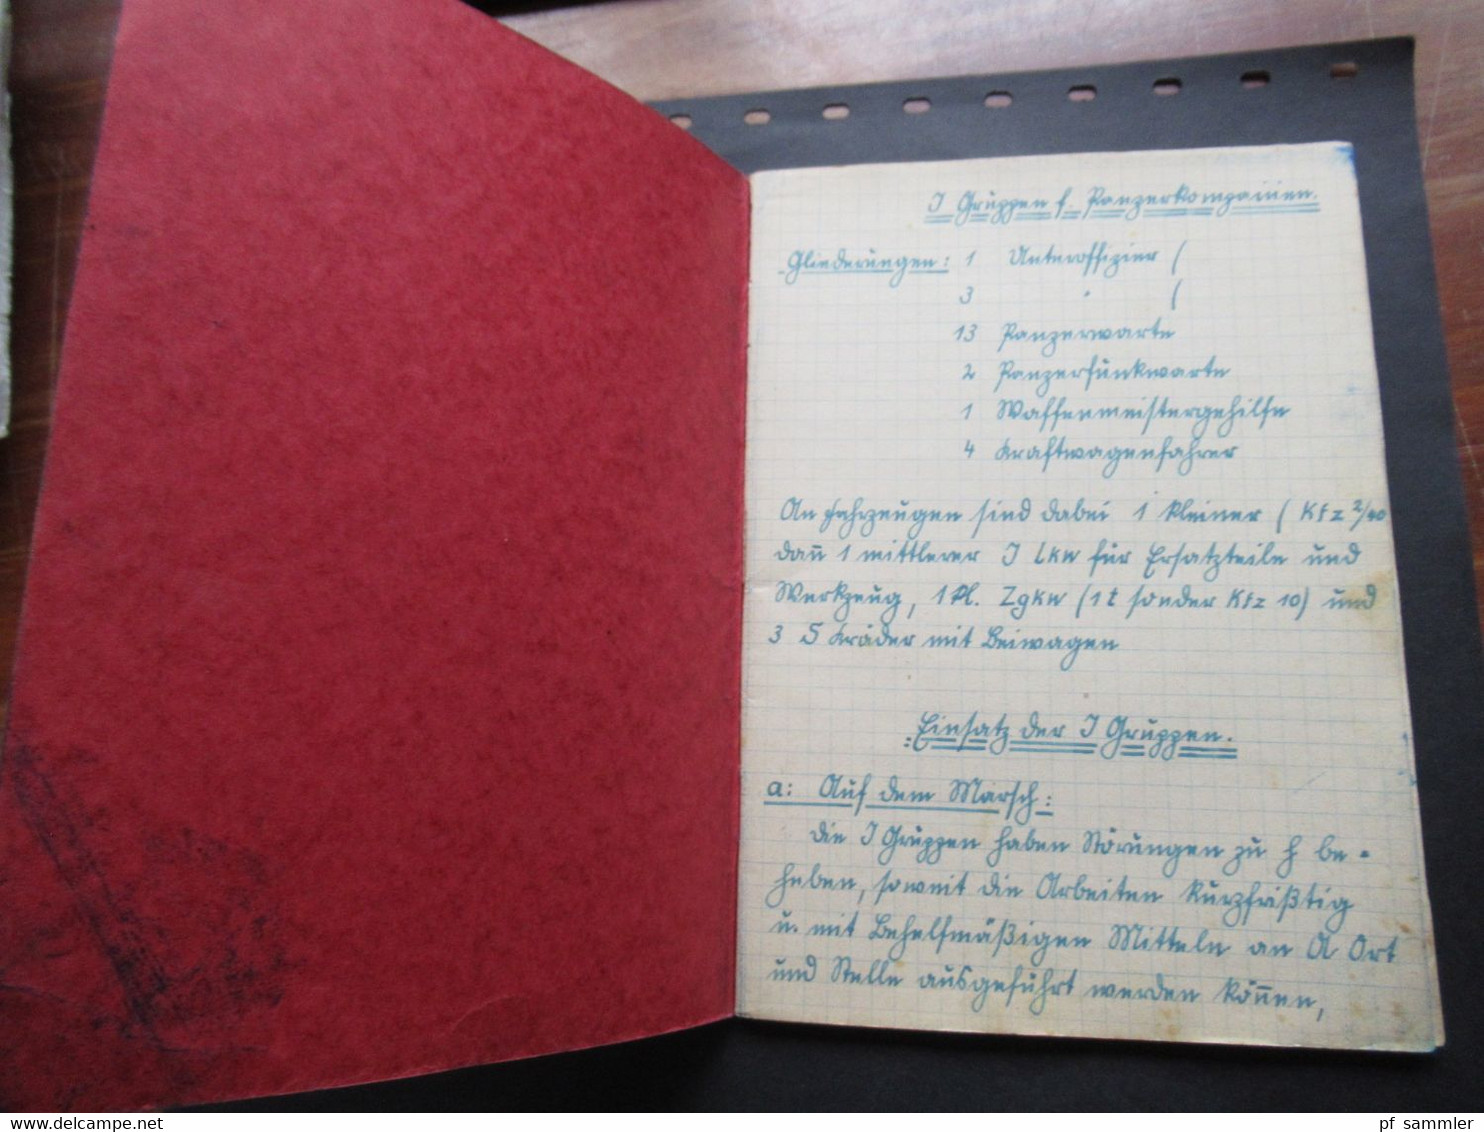 J Gruppen f. Panzerkompanien.
Gliederungen: 1 Unteroffizier (
3 " (
13 Panzerwarte
2 Panzerfunkwarte
1 Waffenmeistergehilfe
4 Kraftwagenfahrer
An Fahrzeugen sind dabei 1 kleiner ( Kfz 2/40
dan̄ 1 mittlerer J Lkw für Ersatzteile und
Werkzeug, 1 kl. Zgkw (1t sonder Kfz 10) und
3 S Kräder mit Beiwagen
Einsatz der J Gruppen.
a: Auf dem Marsch:
die J Gruppen haben Störungen zu be-
heben, soweit die Arbeiten kurzfrißtig
u. mit Behelfmäßigen Mitteln an Ort
und Stelle ausgeführt werden kön̄en,
www.delcampe.net
pf_sammler